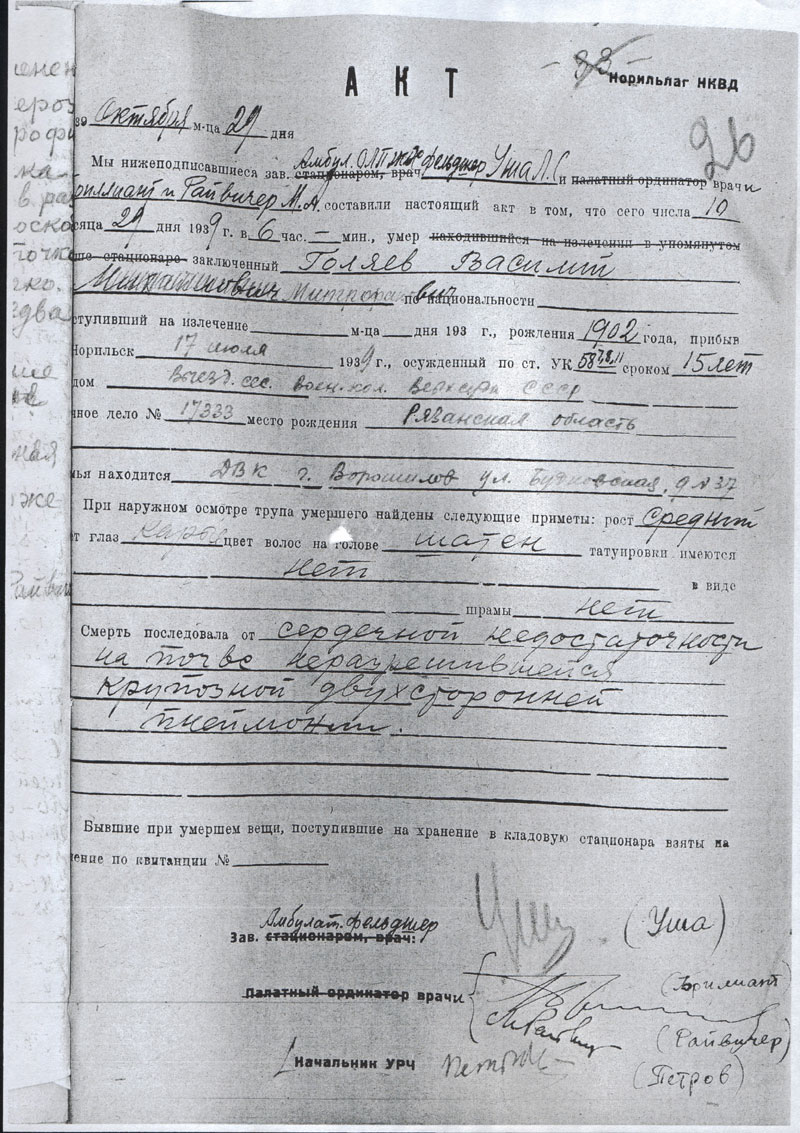 АКТ
- 33 -
Норильлаг НКВД
26
39 Октября м-ца 29 дня
Мы нижеподписавшиеся зав. стационаром, врач Амбул. ОЛП фельджер Уша Л.С и палатный ординатор врачи
риллиант и Райвичер М.А. составили настоящий акт в том, что сего числа 10
сяца 29 дня 1939 г. в 6 час. — мин., умер находившийся на излечении в упомянутом
ше стационаре заключенный Голяев Василий
Митрофанович по национальности
ступивший на излечение м-ца дня 193 г., рождения 1902 года, прибыв
Норильск 17 июля 1939 г., осужденный по ст. УК 58 7,8,11 сроком 15 лет
дом Выезд. сес. воен. кол. Верхсуда СССР
чное дело № 17333 место рождения Рязанская область
мья находится ДВК г. Ворошилов ул.
При наружном осмотре трупа умершего найдены следующие приметы: рост средний
т глаз карие цвет волос на голове шатен татуировки имеются
нет в виде
шрамы нет
Смерть последовала от сердечной недостаточности
на почве неразрешившейся
крупозной двухсторонней
пнеймонии.
Бывшие при умершем вещи, поступившие на хранение в кладовую стационара взяты на
ение по квитанции №
Амбулат. фельджер
Зав. стационаром, врач: (Уша)
Палатный ординатор врачи (Брилиант)
(Райвичер)
Начальник УРЧ (Петров)